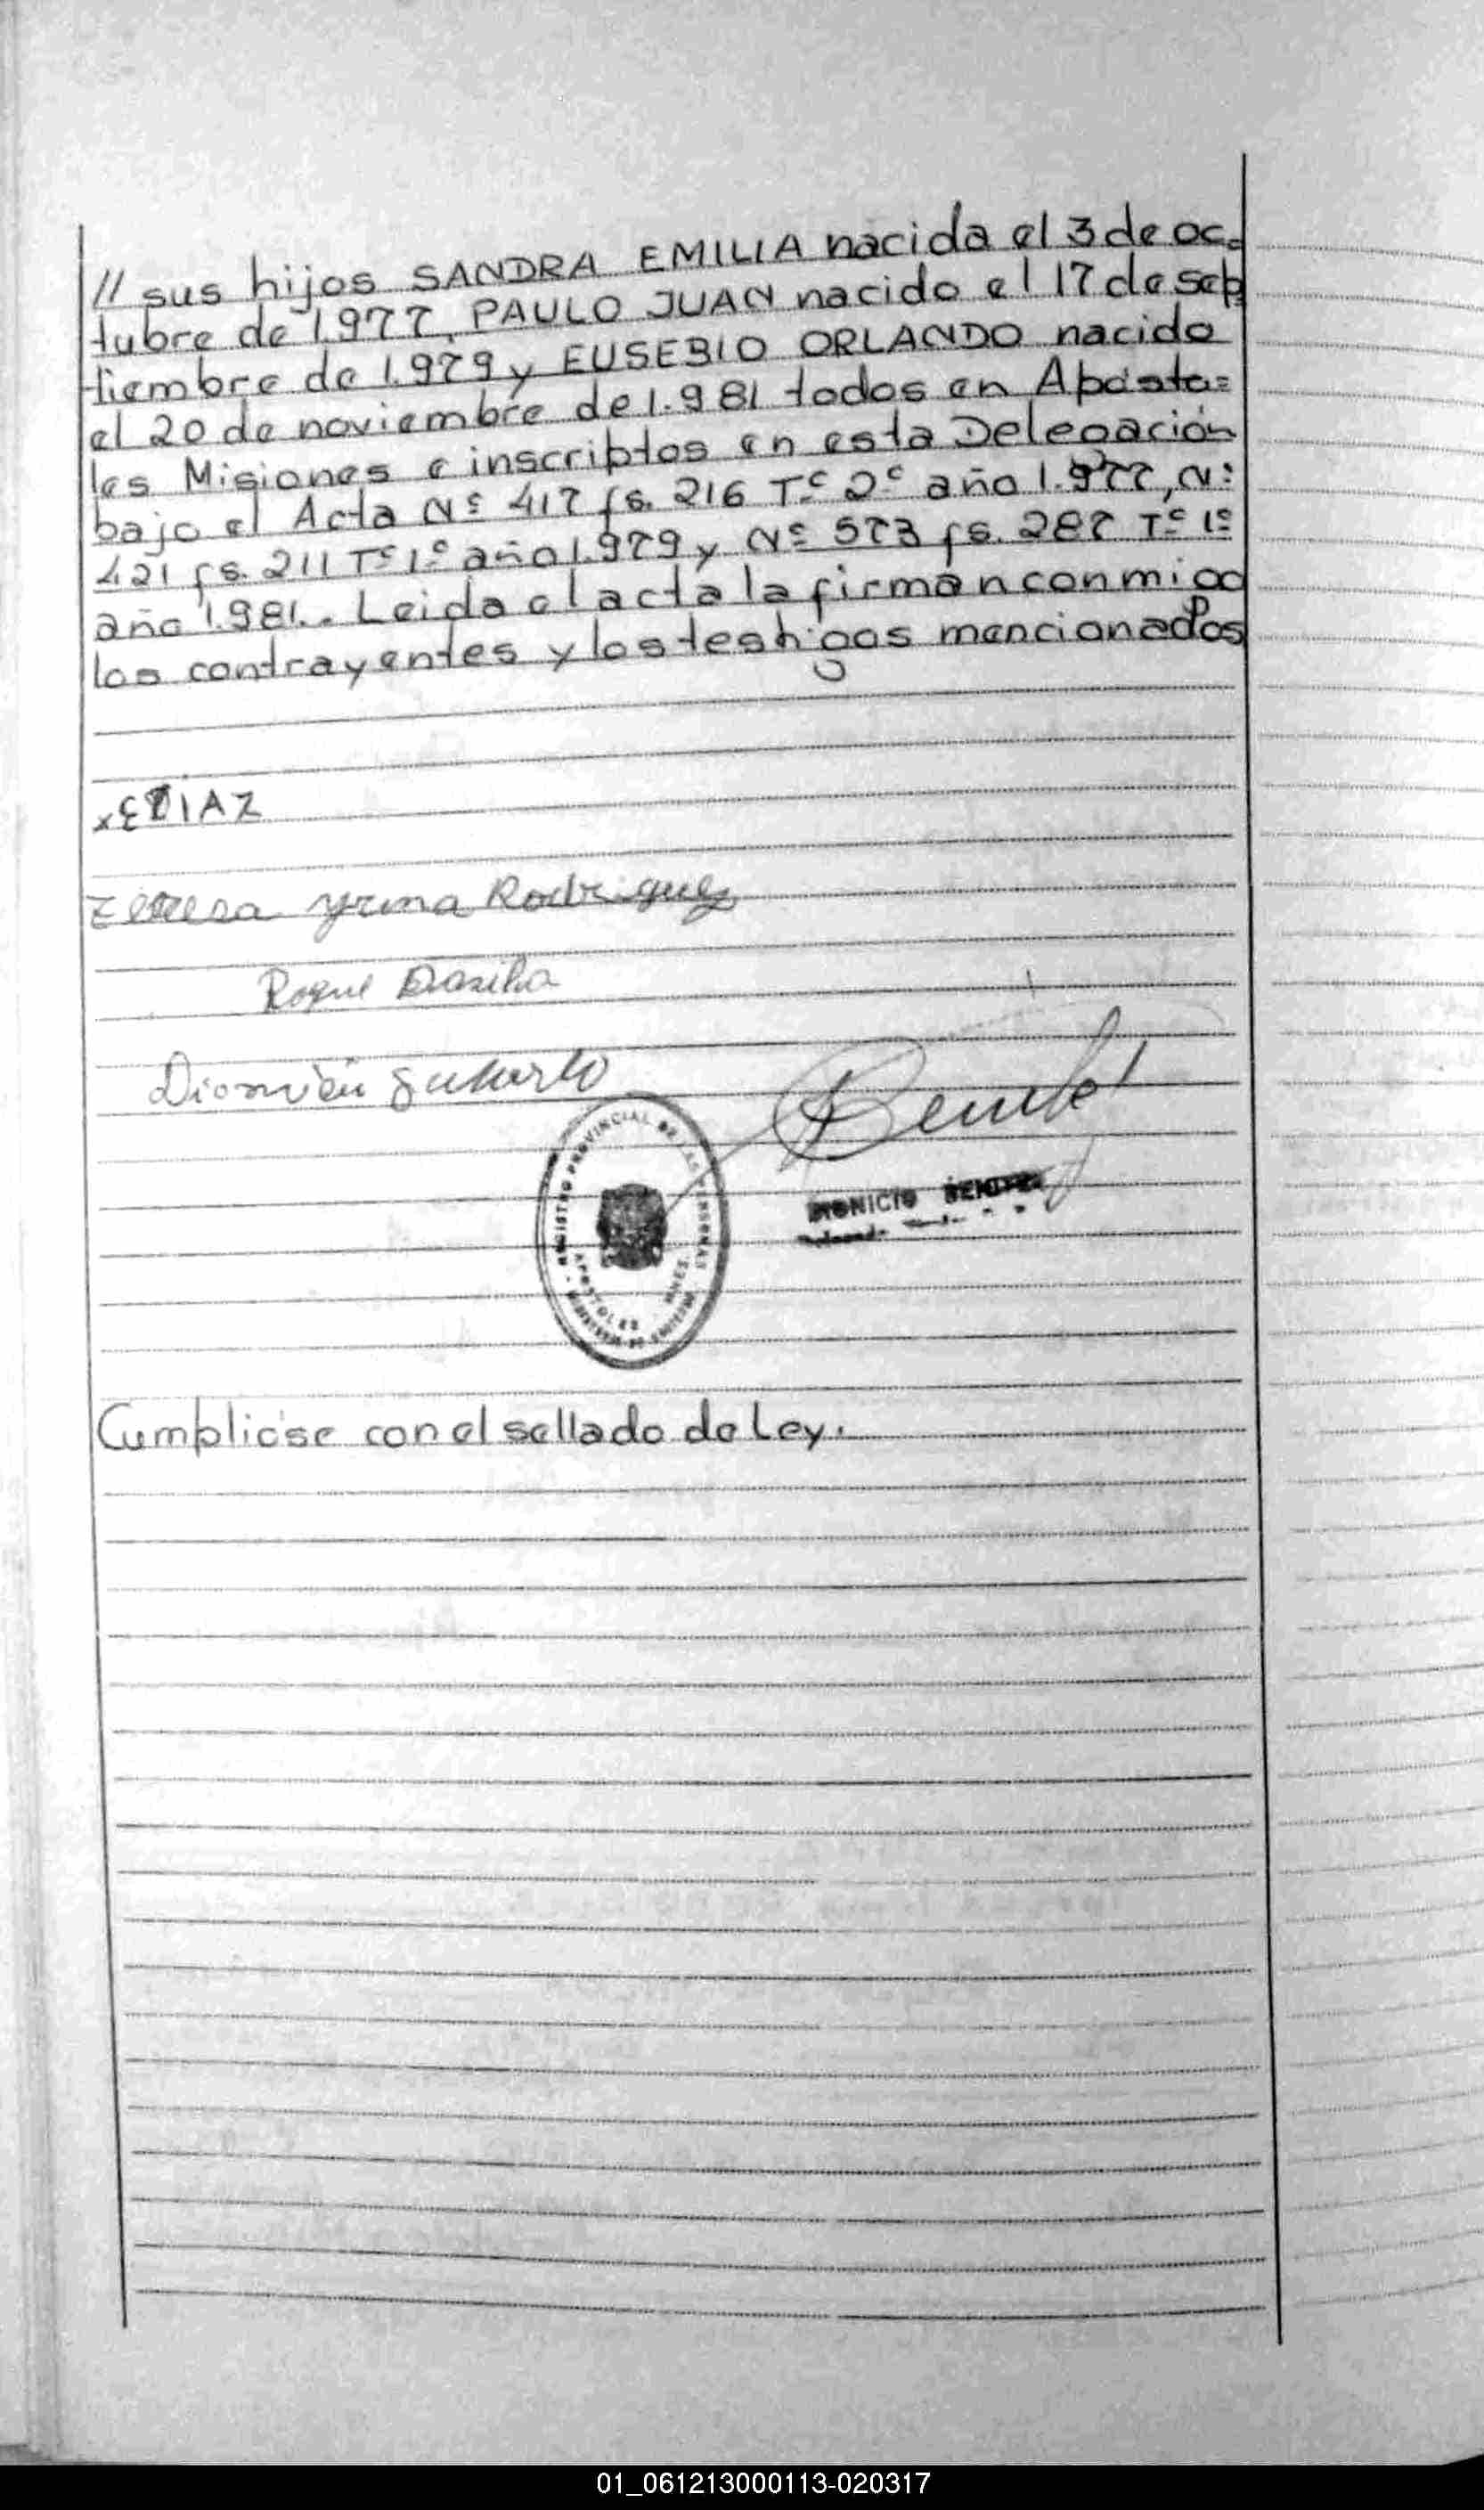 // sus hijos SANDRA EMILIA nacida el 3 de oc=
tubre de 1.977, PAULO JUAN nacido el 17 de sep
tiembre de 1.979 y EUSEBIO ORLANDO nacido
el 20 de noviembre de 1.981 todos en Apósto=
les Misiones e inscriptos en esta Delegación
bajo el Acta Nº 417 fs. 216 Tº 2º año 1.977, Nº
421 fs. 211 Tº 1º año 1.979 y Nº 573 fs. 287 Tº 1º
año 1.981.. Leida el acta la firman conmigo
los contrayentes y los testigos mencionados
x E DIAZ
Teresa Yrma Rodriguez
Roque Dasilva
DIONICIO BENITEZ
REGISTRO PROVINCIAL DE LAS PERSONAS
APOSTOLES MNES.
Cumpliose con el sellado de Ley.
01_061213000113-020317